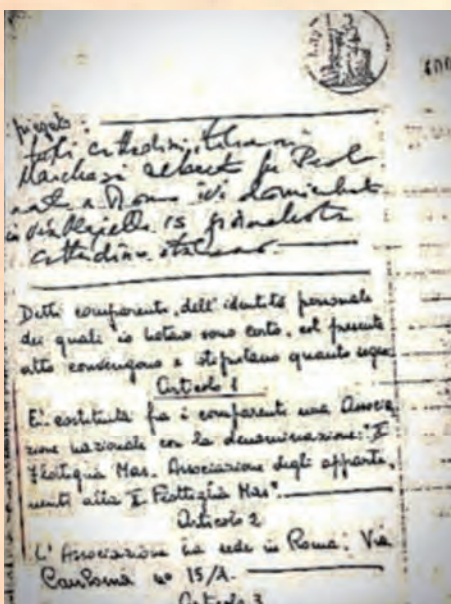 piegato.
tutti cittadini italiani
Marchesi Alberto fu Paolo
nato a Roma ivi domiciliato
in via 15 giornalista
cittadino italiano
Detti comparenti, dell'identità personale
dei quali io notaro sono certo, col presente
atto convengono e stipulano quanto segue:
Articolo 1
E' costituita fra i comparenti una Associa
zione nazionale con la denominazione: "X
Flottiglia Mas. Associazione degli apparte,
nenti alla X Flottiglia Mas".
Articolo 2
L'Associazione ha sede in Roma: Via
nº 15/A.
Articolo 3